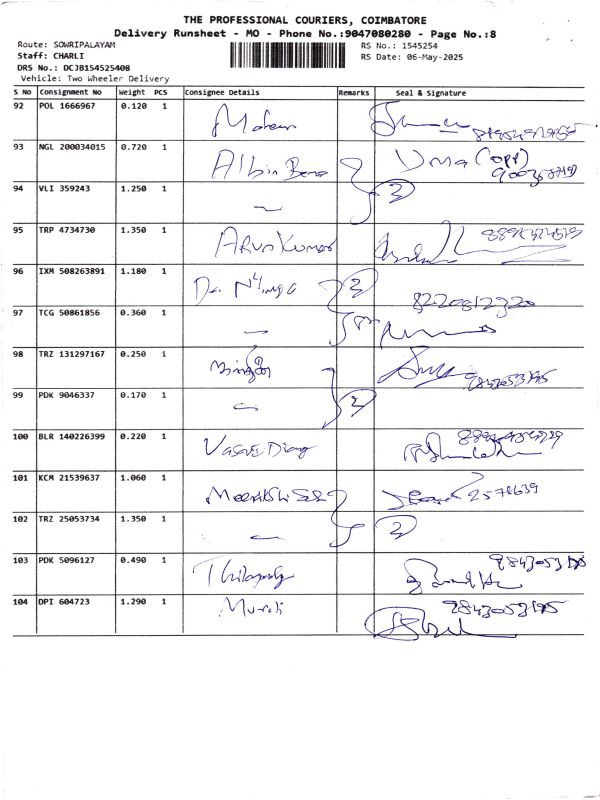 THE PROFESSIONAL COURIERS, COIMBATORE
Delivery Runsheet - MO - Phone No.:9047080280 - Page No.:8
Route: SOWRIPALAYAM
RS No.: 1545254
Staff: CHARLI
RS Date: 06-May-2025
DRS No.: DCJB154525408
Vehicle: Two Wheeler Delivery
S No Consignment No Weight PCS Consignee Details Remarks Seal & Signature
92 POL 1666967 0.120 1 Mohan
93 NGL 200034015 0.720 1 Albin Beno Uma (opp)
94 VLI 359243 1.250 1 2
95 TRP 4734730 1.350 1 Arun Kumar
96 IXM 508263891 1.180 1 2 8220812320
97 TCG 50861856 0.360 1
98 TRZ 131297167 0.250 1 9843053195
99 PDK 9046337 0.170 1 2
100 BLR 140226399 0.220 1
101 KCM 21539637 1.060 1 2578639
102 TRZ 25053734 1.350 1 2
103 PDK 5096127 0.490 1 9843053195
104 DPI 604723 1.290 1 Murali 9843053195